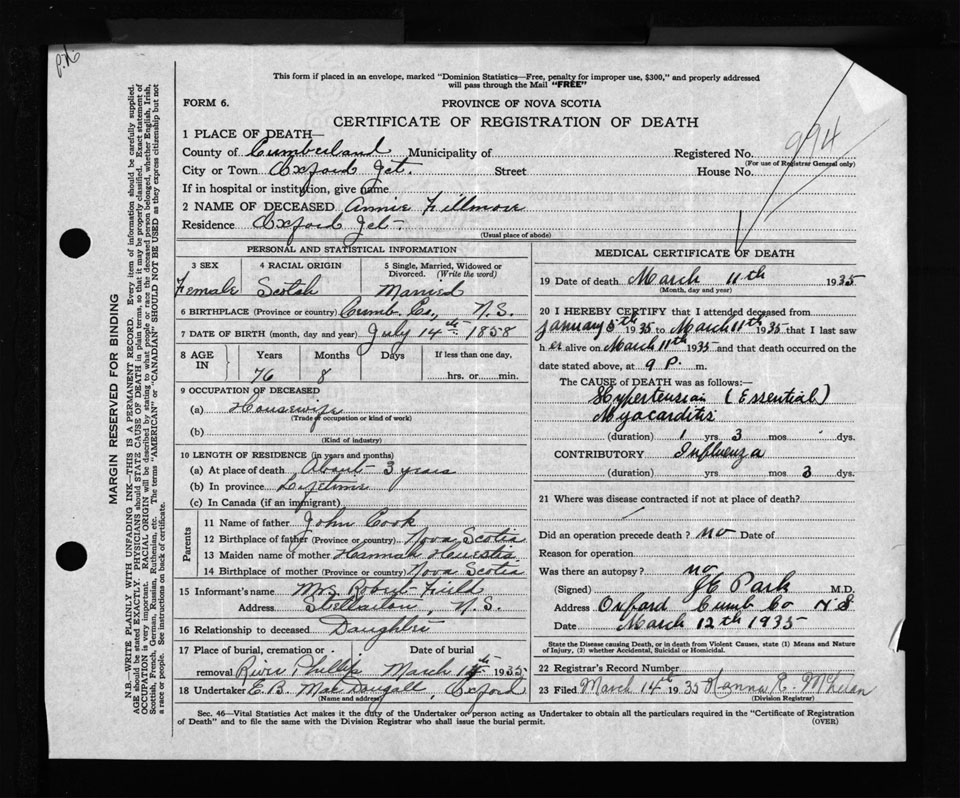 P.N.
This form if placed in an envelope, marked "Dominion Statistics—Free, penalty for improper use, $300," and properly addressed
will pass through the Mail "FREE"
FORM 6. PROVINCE OF NOVA SCOTIA
CERTIFICATE OF REGISTRATION OF DEATH
1 PLACE OF DEATH—
County of Cumberland Municipality of Registered No. 994
(For use of Registrar General only)
City or Town Oxford Jct. Street House No.
If in hospital or institution, give name
2 NAME OF DECEASED Annie Fillmore
Residence Oxford Jct.
(Usual place of abode)
MARGIN RESERVED FOR BINDING
N.B.—WRITE PLAINLY WITH UNFADING INK—THIS IS A PERMANENT RECORD. Every item of information should be carefully supplied.
AGE should be stated EXACTLY. PHYSICIANS should STATE CAUSE OF DEATH in plain terms, so that it may be properly classified. Exact statement of
OCCUPATION is very important. RACIAL ORIGIN will be described by stating to what people or race the deceased person belonged, whether English, Irish,
Scottish, French, German, Russian, Ruthenian, etc. The terms "AMERICAN" or "CANADIAN" SHOULD NOT BE USED as they express citizenship but not
a race or people. See instructions on back of certificate.
PERSONAL AND STATISTICAL INFORMATION
3 SEX 4 RACIAL ORIGIN 5 Single, Married, Widowed or
Divorced. (Write the word)
Female Scotch Married
6 BIRTHPLACE (Province or country) Cumb. Co., N.S.
7 DATE OF BIRTH (month, day and year) July 14th 1858
8 AGE IN Years Months Days If less than one day,
76 8 hrs. or min.
9 OCCUPATION OF DECEASED
(a) Housewife
(Trade, occupation or kind of work)
(b)
(Kind of industry)
10 LENGTH OF RESIDENCE (in years and months)
(a) At place of death About 3 years
(b) In province Lifetime
(c) In Canada (if an immigrant)
Parents
11 Name of father John Cook
12 Birthplace of father (Province or country) Nova Scotia
13 Maiden name of mother Hannah
14 Birthplace of mother (Province or country) Nova Scotia
15 Informant's name Mrs Robert Field
Address Stellarton, N.S.
16 Relationship to deceased Daughter
17 Place of burial, cremation or Date of burial
removal River Phillip March 1935
18 Undertaker E. B. MacDougall, Oxford
(Name and address)
MEDICAL CERTIFICATE OF DEATH
19 Date of death March 11th 1935
(Month, day and year)
20 I HEREBY CERTIFY that I attended deceased from
January 5th 1935 to March 11th 1935 that I last saw
her alive on March 11th 1935 and that death occurred on the
date stated above, at 9 P. m.
The CAUSE OF DEATH was as follows:—
Hypertension (Essential)
Myocarditis
(duration) 1 yrs 3 mos dys.
CONTRIBUTORY Influenza
(duration) yrs mos 3 dys.
21 Where was disease contracted if not at place of death?
Did an operation precede death? no Date of
Reason for operation
Was there an autopsy? no
(Signed) J C Park M.D.
Address Oxford Cumb Co N S
Date March 12th 1935
State the Disease causing Death, or in death from Violent Causes, state (1) Means and Nature
of Injury, (2) whether Accidental, Suicidal or Homicidal.
22 Registrar's Record Number
23 Filed March 14th 1935 Hanna E.
(Division Registrar)
Sec. 46—Vital Statistics Act makes it the duty of the Undertaker or person acting as Undertaker to obtain all the particulars required in the "Certificate of Registration
of Death" and to file the same with the Division Registrar who shall issue the burial permit. (OVER)